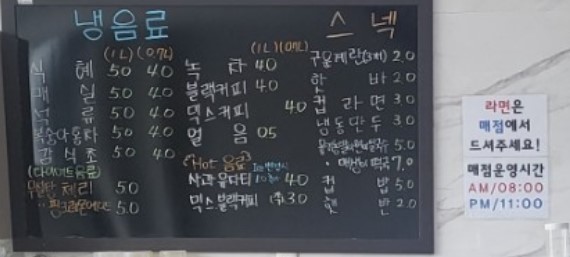 냉음료
(1L) (0.7L)
식 혜 5.0 4.0
매 실 5.0 4.0
석 류 5.0 4.0
복숭아홍차 5.0 4.0
감식초 5.0 4.0
(다이어트음료)
무설탕 체리 5.0
5.0
(1L) (0.7L)
녹 차 4.0
블랙커피 4.0
믹스커피 4.0
얼 음 0.5
<Hot 음료>
사과몰디티 4.0
믹스블랙커피 3.0
스넥
구운계란(3개) 2.0
핫 바 2.0
컵 라 면 3.0
냉동만두 3.0
5.0
7.0
컵 밥 5.0
햇 반 2.0
라면은
매점에서
드셔주세요!
매점운영시간
AM/08:00
PM/11:00